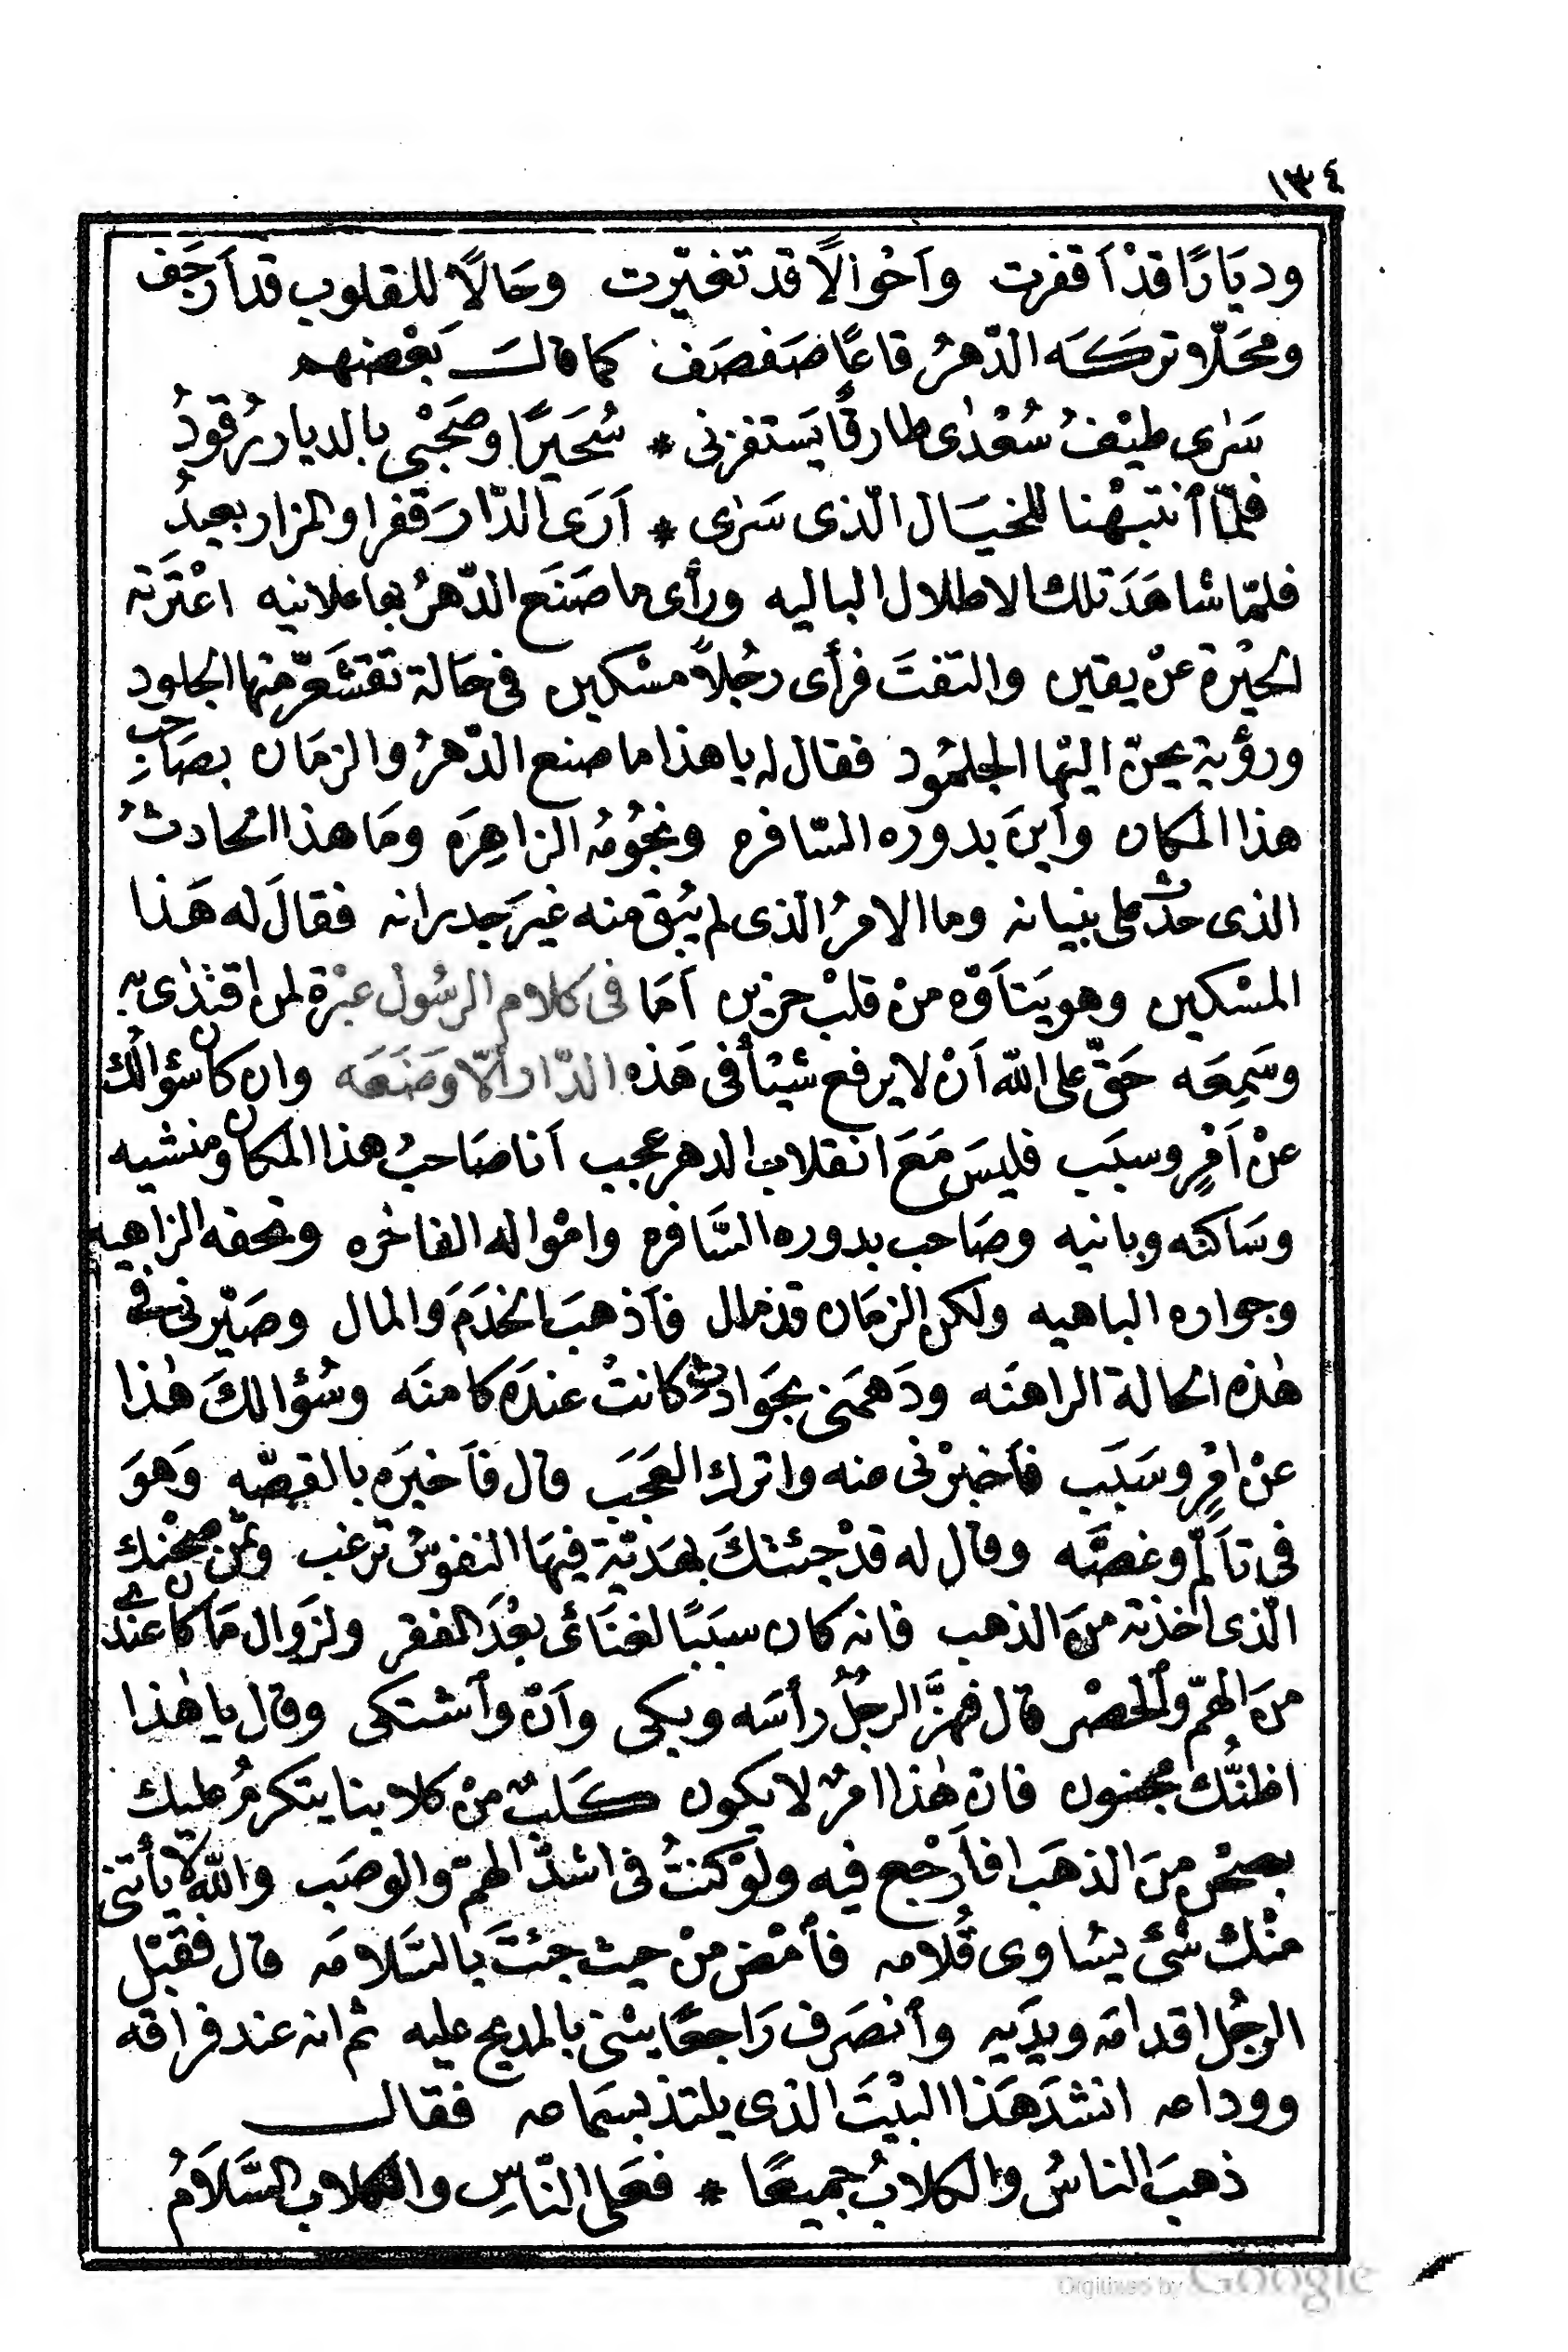 ١٣٤
وديَارًا قدْ اَقفرت واَحْوالًا قد تغيّرت وحَالًا للقلوب قد اَرجَف
ومحَلّا تركَه الدّهرُ قاعًا صَفصَف كما قالَ بَعْضهم
سَرٰى طيْفُ سُعْدٰى طارقًا يَستفزنى * سُحَيرًا وصَحْبى بالديار رُقودُ
فلمّا ٱنتبهْنا للخيَال الّذى سَرٰى * اَرَى الدّارَ قفرا والمزار بعيدُ
فلمّا شاهَدَ تلك الاطلال الباليه ورأى ما صَنَع الدّهرُ بها علانيه اعْتَرَته
الحيْرة عنْ يقين والتفتَ فرأى رجُلاً مسْكين فى حَالة تقشَعرّ منها الجلود
ورؤية يحنّ اليْها الجلمُود فقال له يا هذا ما صنع الدّهرُ والزمَان بصَاحِب
هذا المكان واَينَ بدوره السّافره ونجُومُه الزاهِرَه ومَا هذا الحادثُ
الذى حدَث على بنيانه وما الامرُ الّذى لم يبْق منه غيرَ جدرانه فقالَ له هَذا
المسْكين وهو يَتأوّه منْ قلبْ حزين اَمَا فى كلام الرسُول عبْرة لمن اقتدٰى به
وسَمِعَه حَقّ على الله اَنْ لا يرفع شيْئاً فى هَذه الدّار اِلّا وضَعَه وان كان سؤالك
عنْ اَمْرٍ وسبَب فليسَ مَعَ انقلاب الدهر عجيب اَنا صَاحبُ هذا المكان ومنشيه
وسَاكنه وبانيه وصَاحب بدوره السَّافره وامْواله الفاخره وتحفه الزاهيه
وجواره الباهيه ولكن الزمَان قد مال فاَذهبَ الخدَمَ والمال وصَيّرنى فى
هٰذه الحالة الراهنَه ودَهمَنى بحَوادثٍ كانتْ عندَه كامنَه وسُؤالكَ هٰذا
عنْ امْرٍ وسَبَب فاَخبرْنى منه واترك العجَبَ قال فاَخبَره بالقصّه وَهوَ
فى تاَلّم وغصَّه وقال له قدْ جئتكَ بهَديّة فيهَا النفوسُ ترغب وثمن صحْنك
الّذى اخذته منَ الذهب فانه كان سببًا لغنَائى بعْدَ الفقر ولزوال مَا كان عندى
منَ الهمّ والحصْر قال فهزَّ الرجُلُ رأسَه وبكى واَنّ وٱشتكى وقال يا هٰذا
اظنُّك مجنون فان هٰذا امرٌ لا يكون كَلبٌ منْ كلابنا يتكرمُ عليك
بصحْن منَ الذهَب افاَرْجع فيه ولوْ كنتُ فى اشدّ الهمّ والوصَب والله لا يأتنى
منْك شىْءٌ يسَاوى قُلامه فٱمْض منْ حيث جئتَ بالسَّلامَه قال فقَبّل
الرجُل اقدامَه ويدَيه وٱنصَرف رَاجعًا يثنى بالمديح عليه ثم انه عند فراقه
ووداعه انشدَ هَذا البيْتَ الذى يلتذ بسَماعه فقال
ذهبَ الناسُ والكلابُ جميعًا * فعَلى النّاسِ والكلاب السَّلاَمُ
Digitized by Google